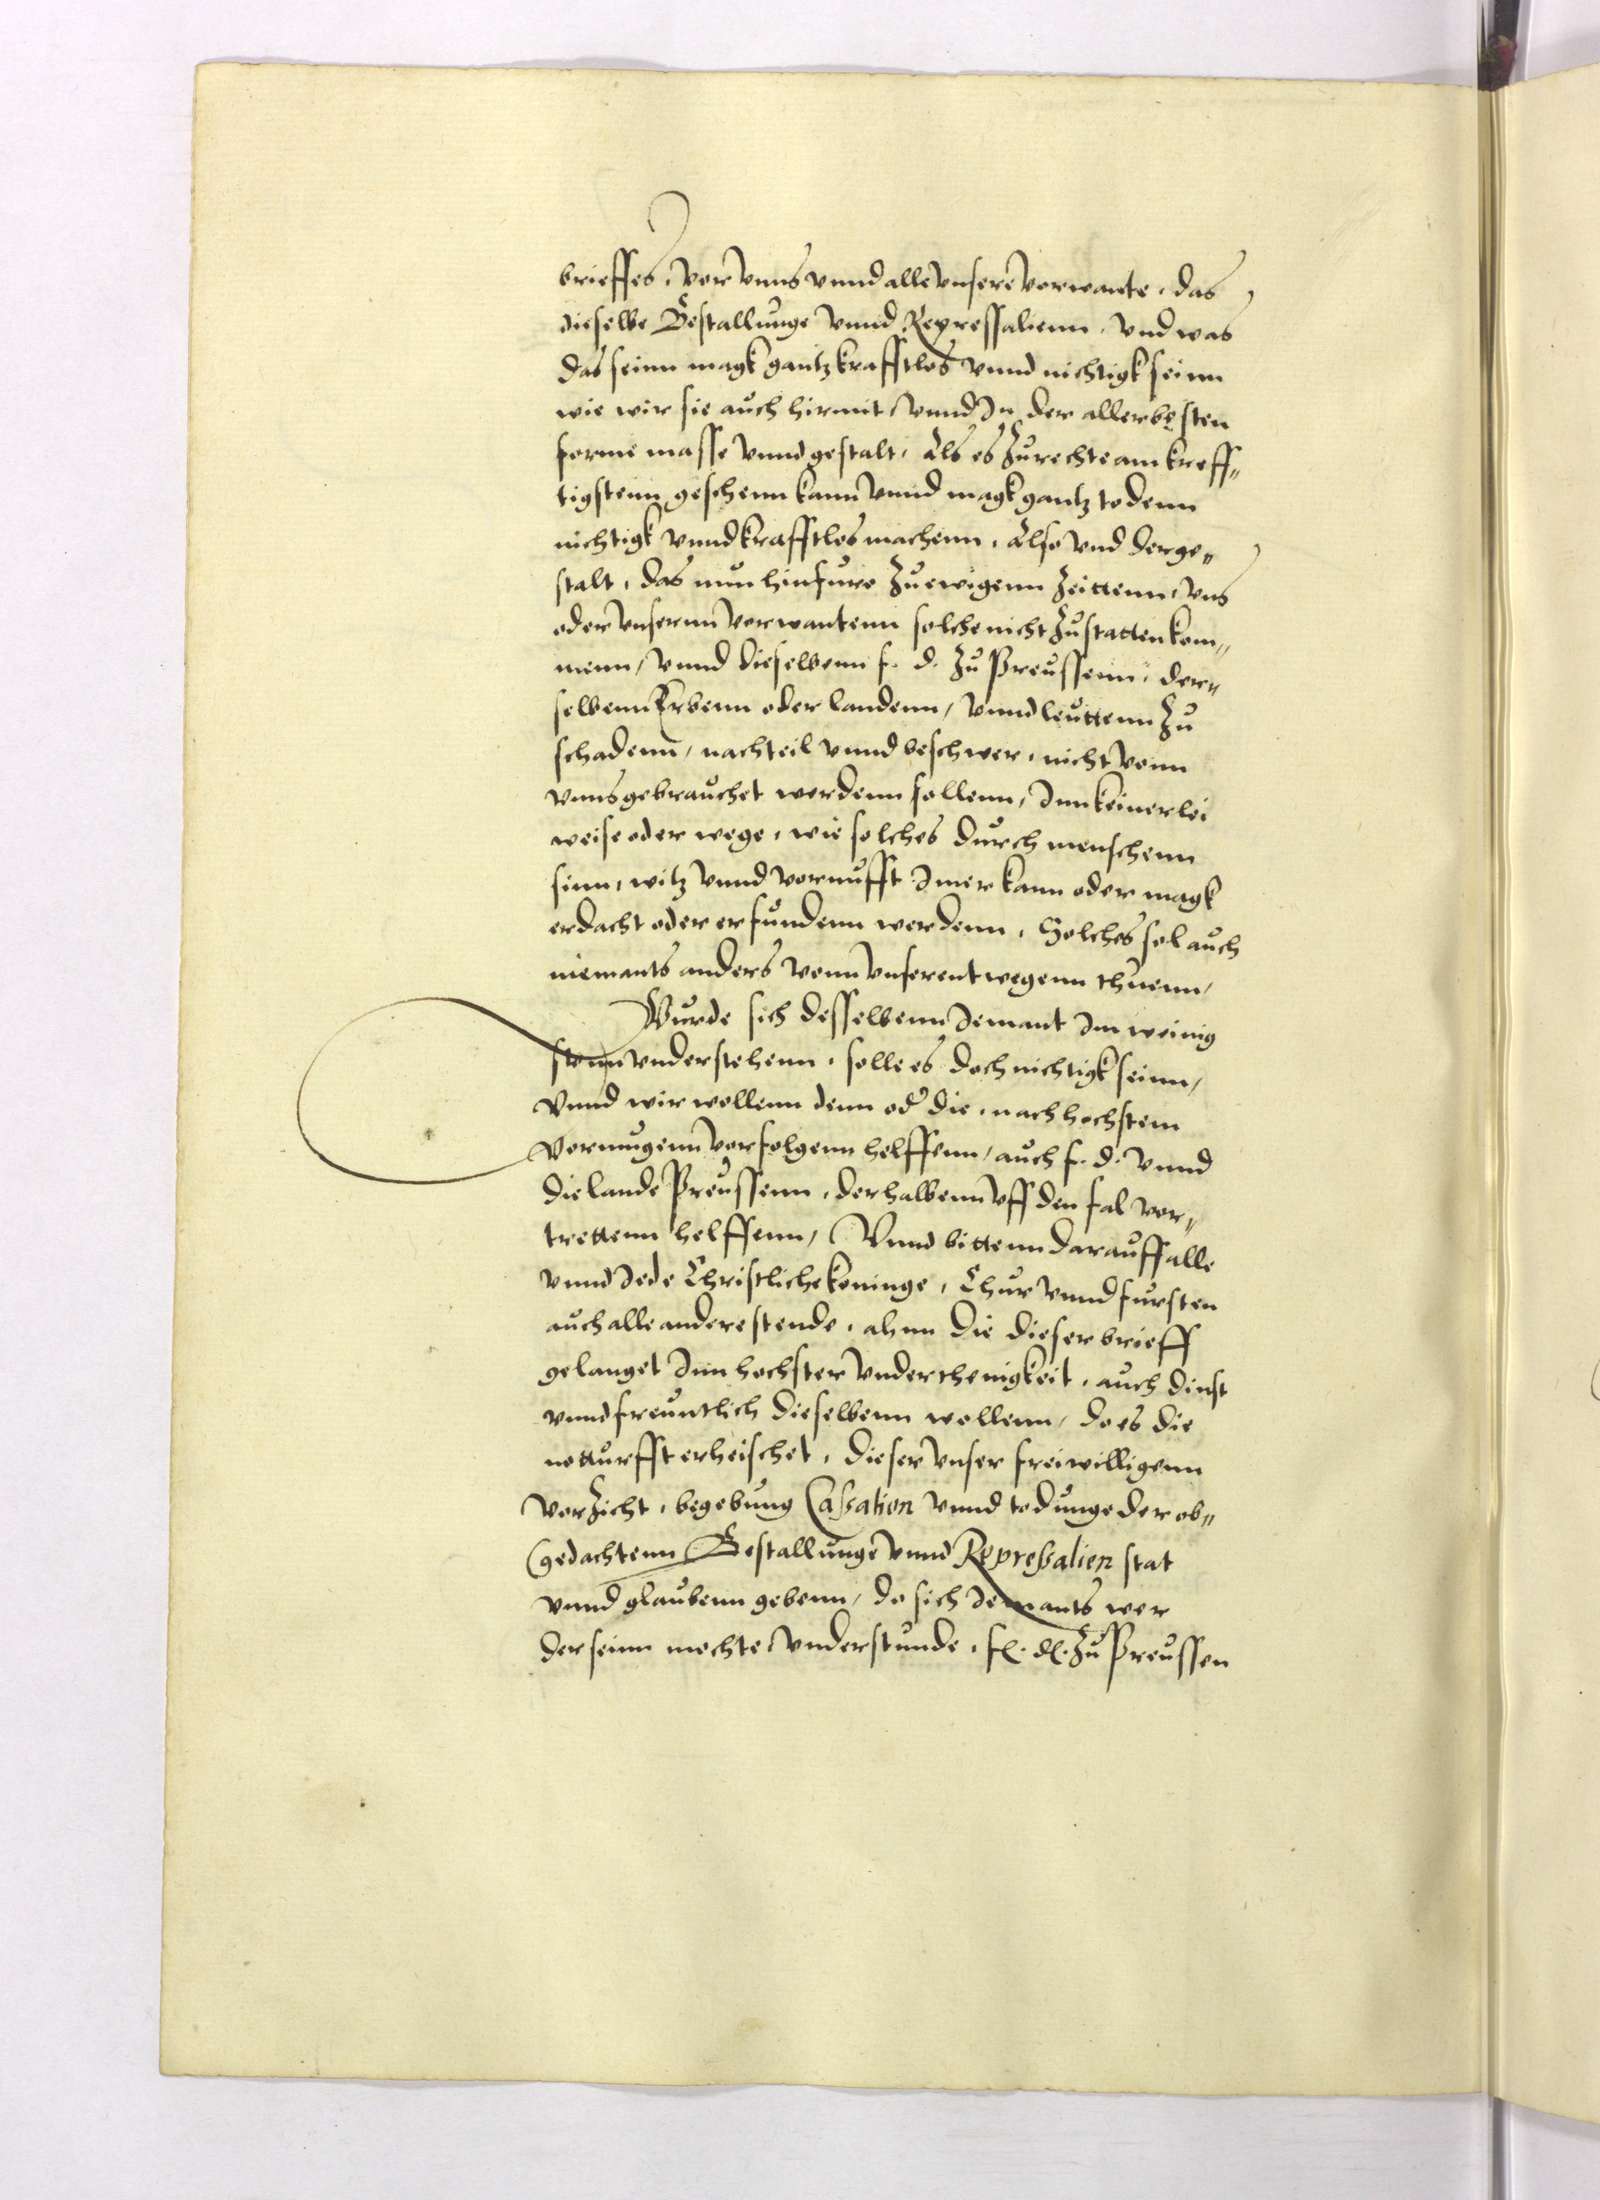 brieffes, vor vnns vnnd alle vnsere vorwante, das
dieselbe Bestallunge vnnd Repressalienn, vnd was
das seinn magk gantz krafftlos vnnd nichtigk seinn
wie wir sie auch hirmit vnnd In der allerbesten
forme masse vnnd gestalt, Als es Zu rechte am kreff„
tigstenn geschenn kann vnnd magk gantz todenn
nichtigk vnnd krafftlos machenn, Also vnd derge„
stalt, das nun hinfuro Zu ewigenn Zeittenn, vns
oder vnsernn vorwantenn solche nicht Zustatten kom„
menn, vnnd dieselbenn f. d. Zu Preussenn, der„
selbenn Erbenn oder landenn, vnnd leuttenn Zu
schadenn, nachteil vnnd beschwer, nicht vonn
vnns gebrauchet werdenn sollenn, Inn keinerlei
weise oder wege, wie solches durch menschenn
sinn, witz vnnd vornufft Imer kann oder magk
erdacht oder erfundenn werdenn, Solches sol auch
niemants anders vonn vnserentwegenn thuenn,
Wurde sich desselbenn Iemant Im weinig
stenn vnderstehenn, solle es doch nichtigk seinn,
Vnnd wir wollenn denn od die, nach hochstem
vormugenn vorfolgenn helffenn, auch f. d. vnnd
die lande Preussenn, derhalbenn vff den fal vor„
trettenn helffenn, Vnnd bittenn darauff alle
vnnd Iede Christliche koninge, Chur vnnd fursten
auch alle andere stende, ahnn die dieser brieff
gelanget Inn hochster vnderthenigkeit, auch dinst
vnnd freuntlich dieselbenn wollenn, do es die
notturfft erheischet, dieser vnser freiwilligenn
vorzicht, begebung Cassation vnnd todunge der ob„
gedachtenn Bestallunge vnnd Repressalien stat
vnnd glaubenn gebenn, do sich Iemants wer
der seinn mochte vnderstunde, fl. dl. Zu Preussen